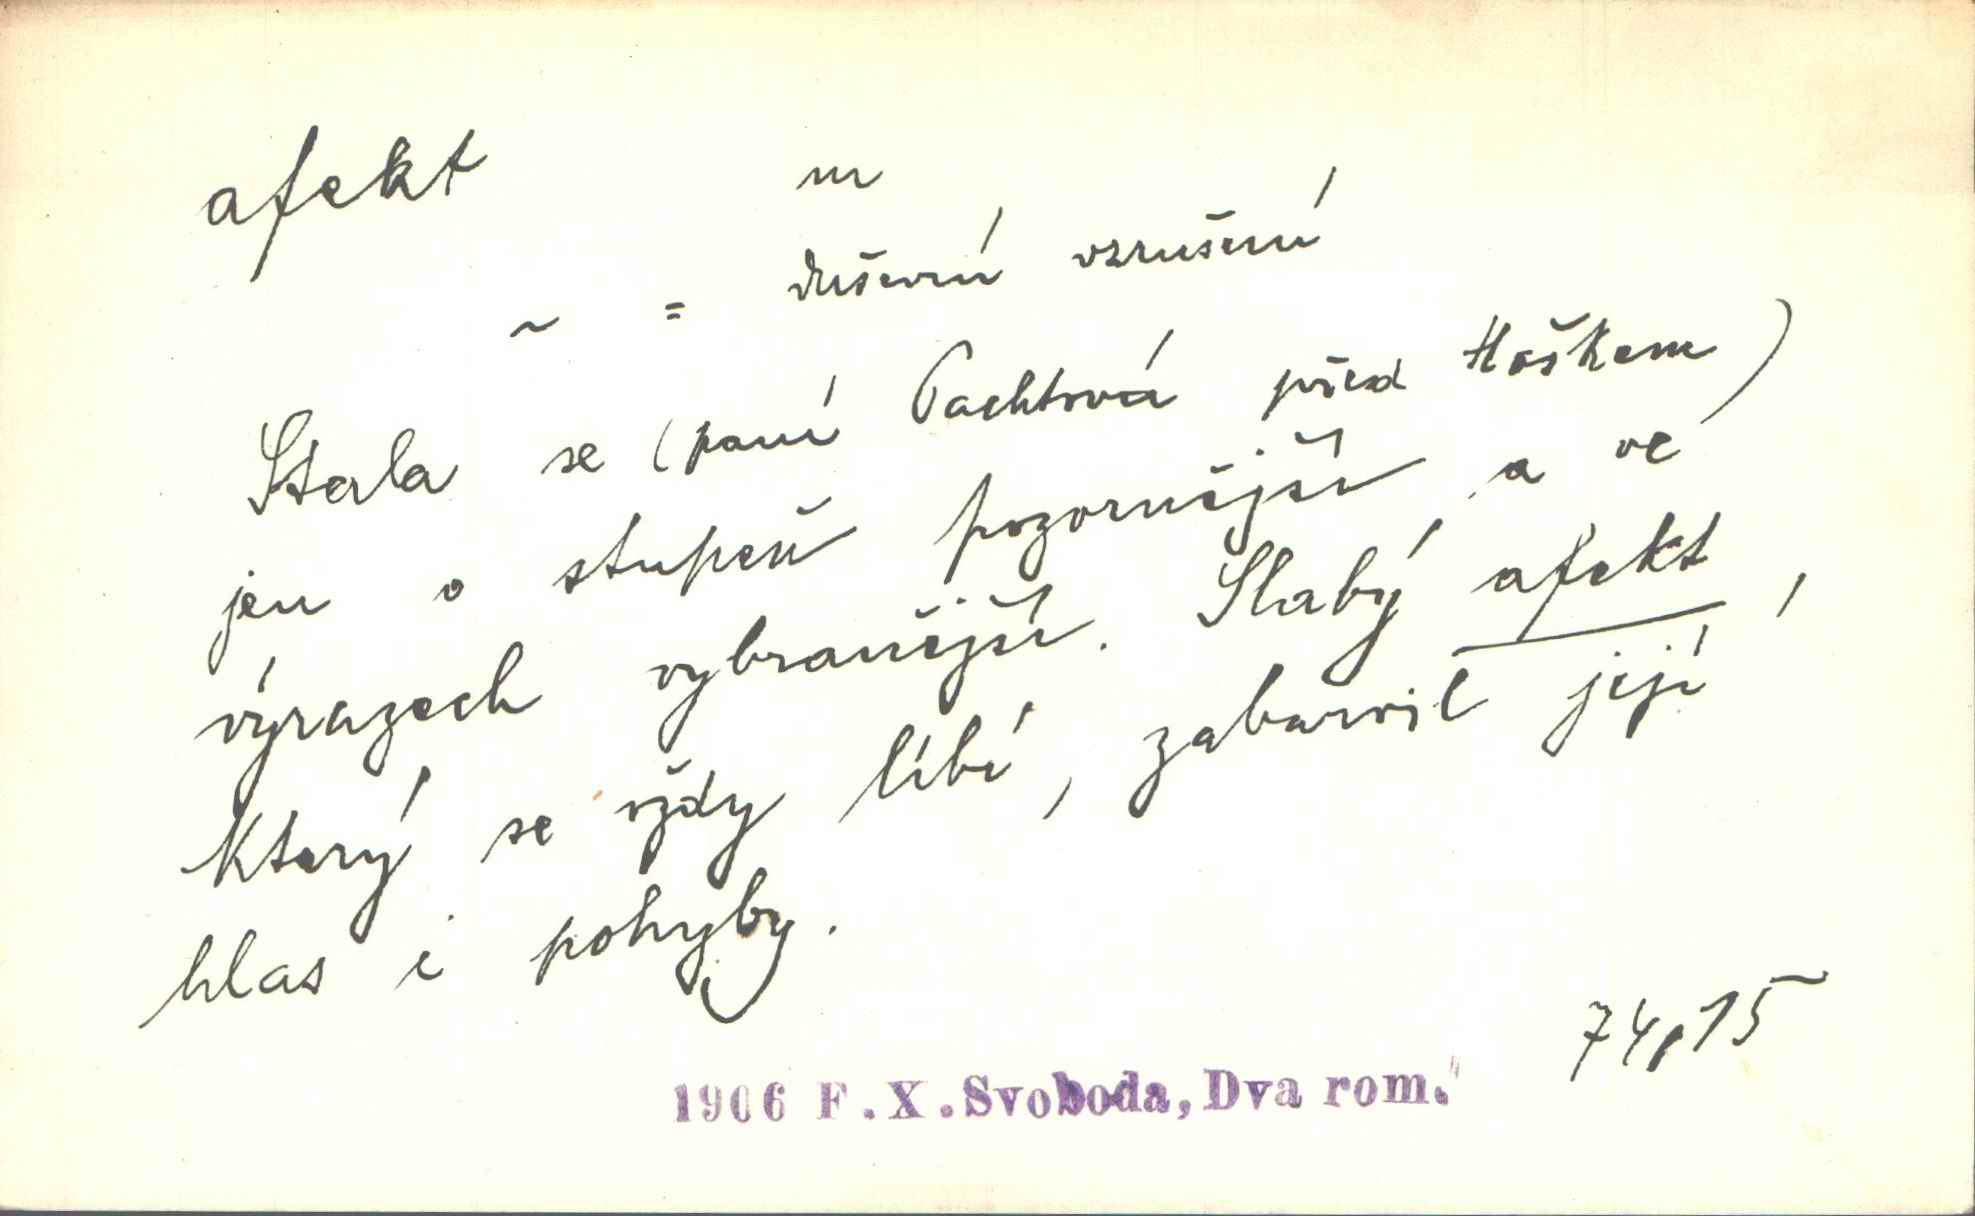 afekt m
~ = duševní vzrušení
Stala se (paní Pachtová před Hoškem)
jen o stupeň pozornější a ve
výrazech vybranější. Slabý afekt,
který se vždy líbí, zabarvil její
hlas i pohyby.
74,15
1906 F.X.Svoboda, Dva rom.